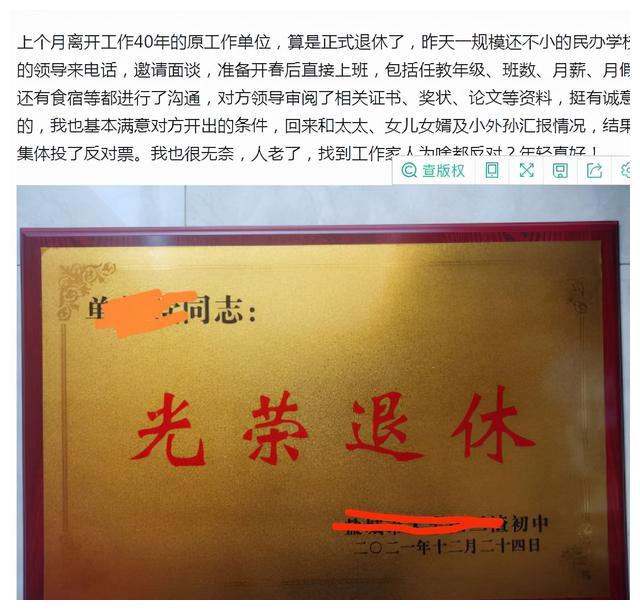 上个月离开工作40年的原工作单位，算是正式退休了，昨天一规模还不小的民办学校
的领导来电话，邀请面谈，准备开春后直接上班，包括任教年级、班数、月薪、月假
还有食宿等都进行了沟通，对方领导审阅了相关证书、奖状、论文等资料，挺有诚意
的，我也基本满意对方开出的条件，回来和太太、女儿女婿及小外孙汇报情况，结果
集体投了反对票。我也很无奈，人老了，找到工作家人为啥都反对？年轻真好！
查版权
单 同志：
光荣退休
初中
二〇二一年十二月二十四日